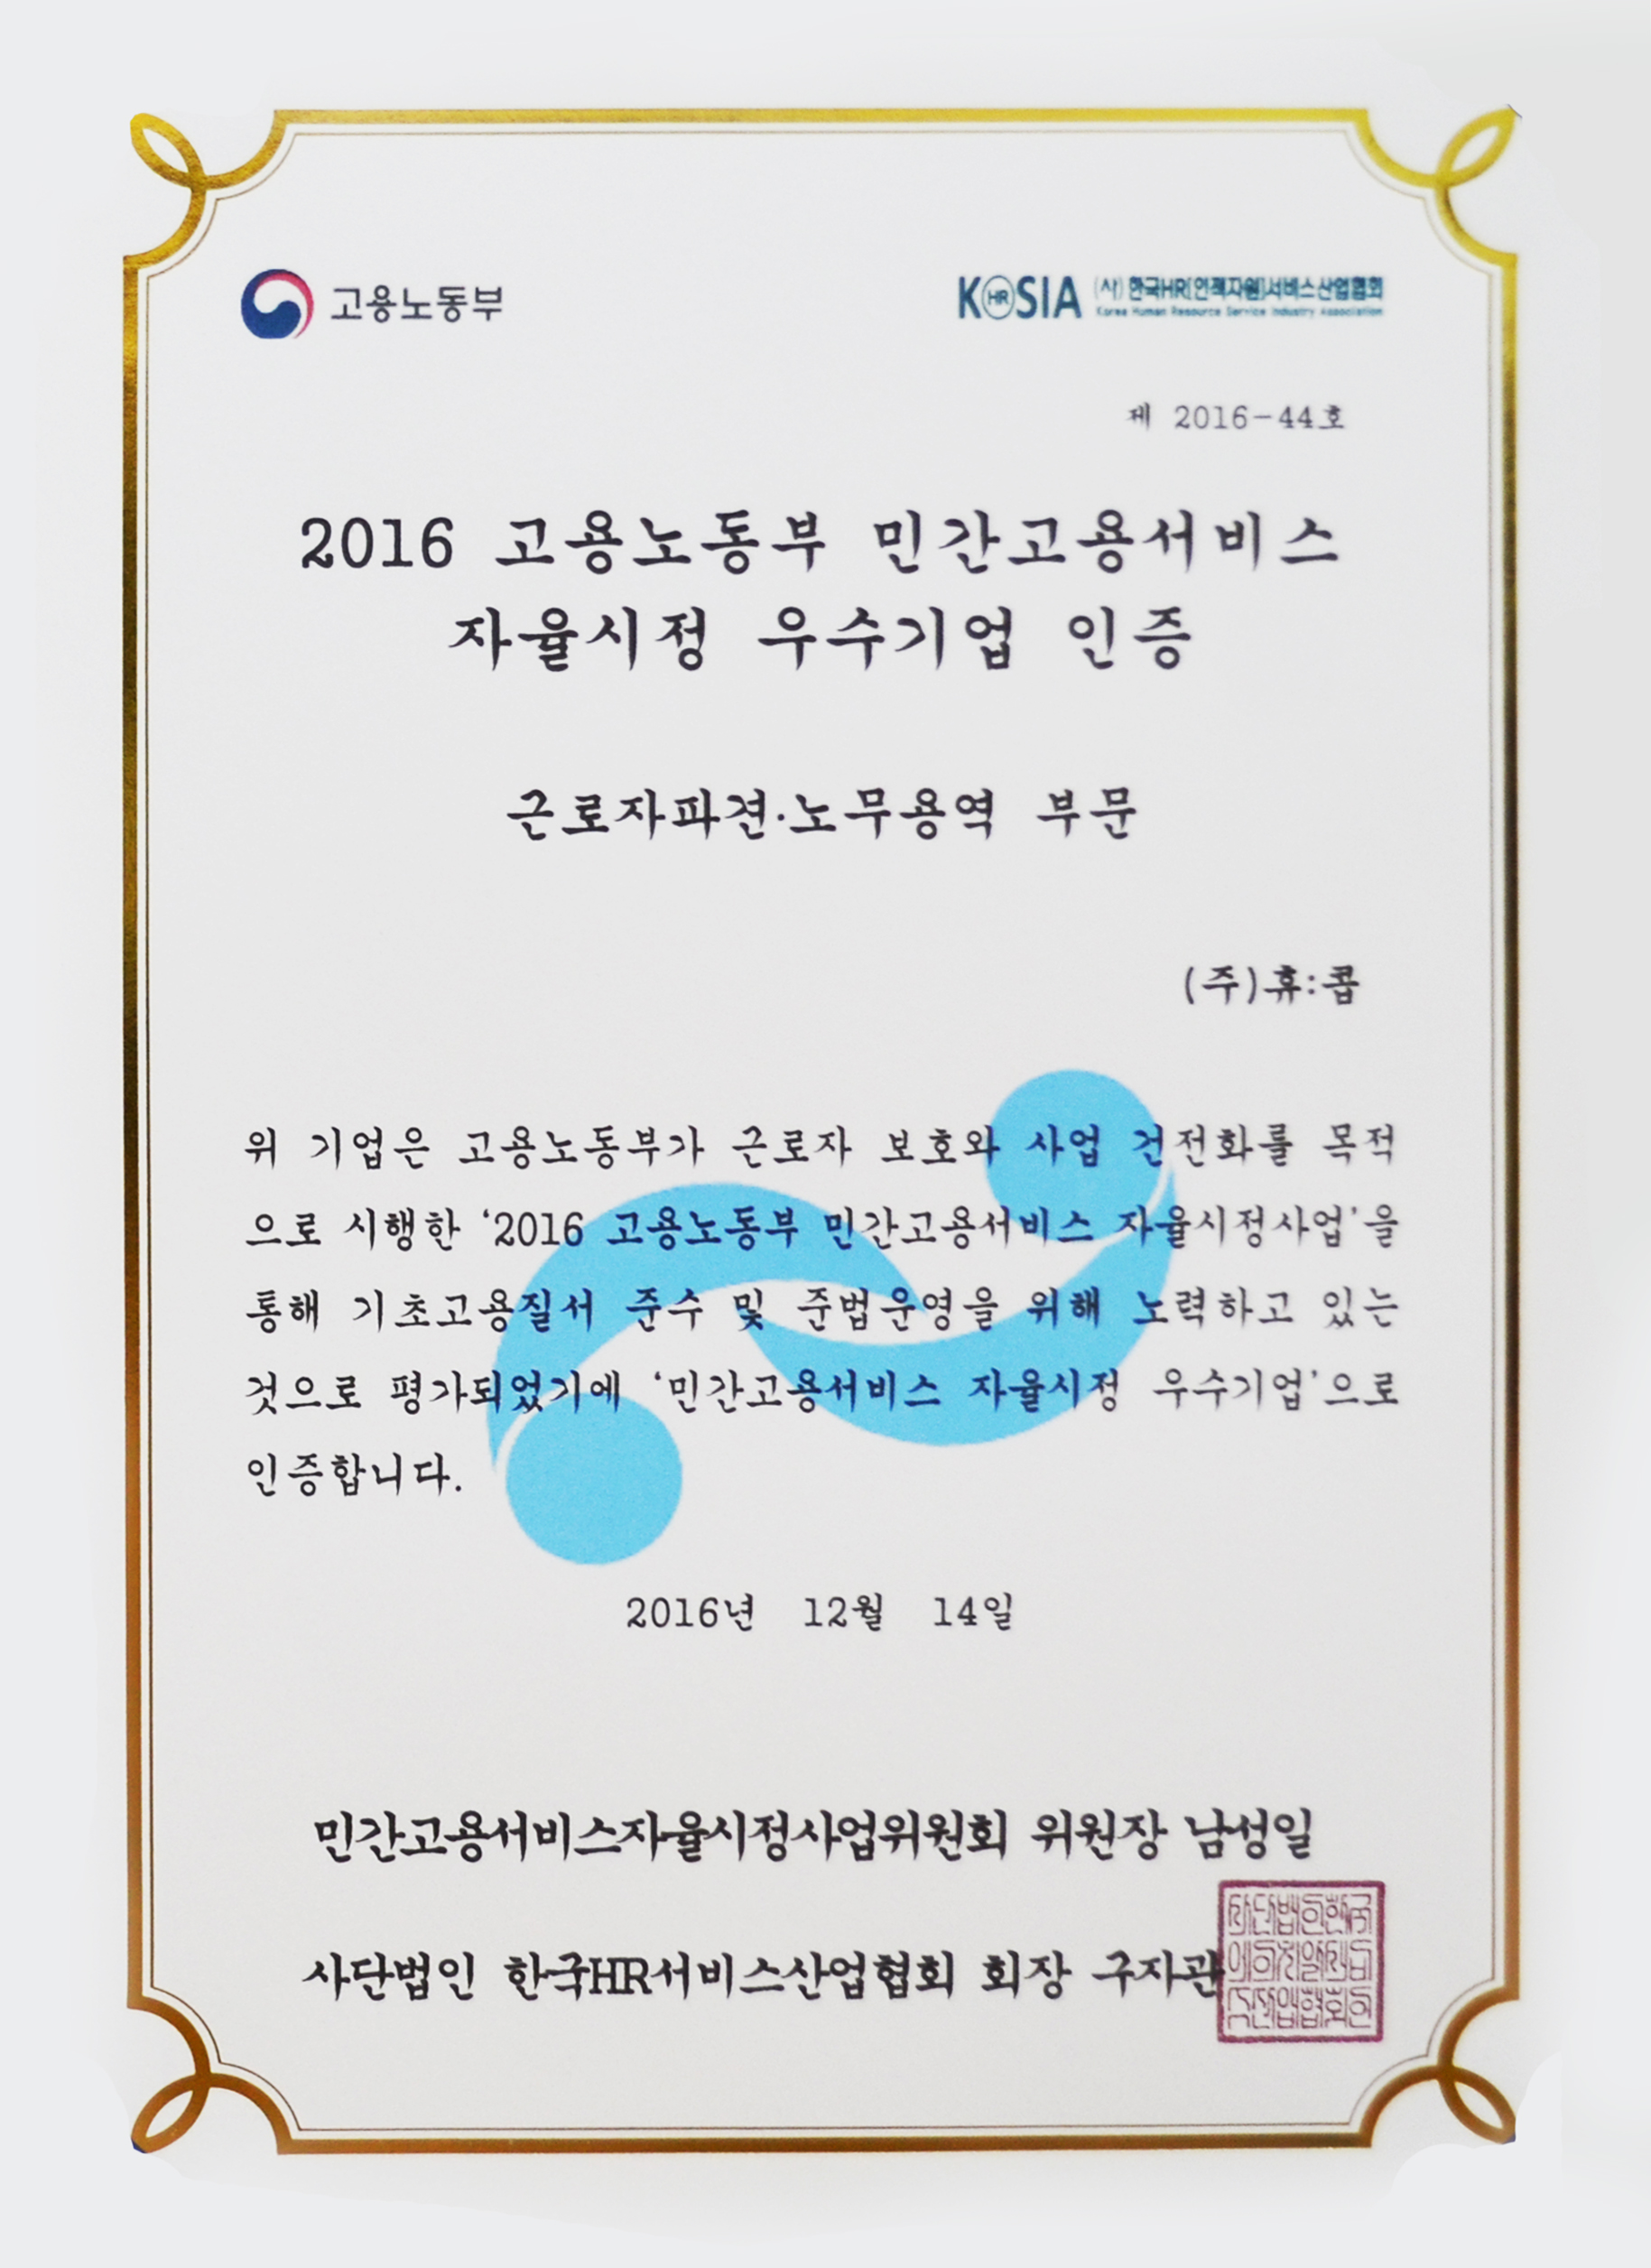 고용노동부
KHRSIA (사)한국HR(인적자원)서비스산업협회
Korea Human Resource Service Industry Association
제 2016-44호
2016 고용노동부 민간고용서비스
자율시정 우수기업 인증
근로자파견·노무용역 부문
(주)휴:콥
위 기업은 고용노동부가 근로자 보호와 사업 건전화를 목적
으로 시행한 ‘2016 고용노동부 민간고용서비스 자율시정사업’을
통해 기초고용질서 준수 및 준법운영을 위해 노력하고 있는
것으로 평가되었기에 ‘민간고용서비스 자율시정 우수기업’으로
인증합니다.
2016년 12월 14일
민간고용서비스자율시정사업위원회 위원장 남성일
사단법인 한국HR서비스산업협회 회장 구자관